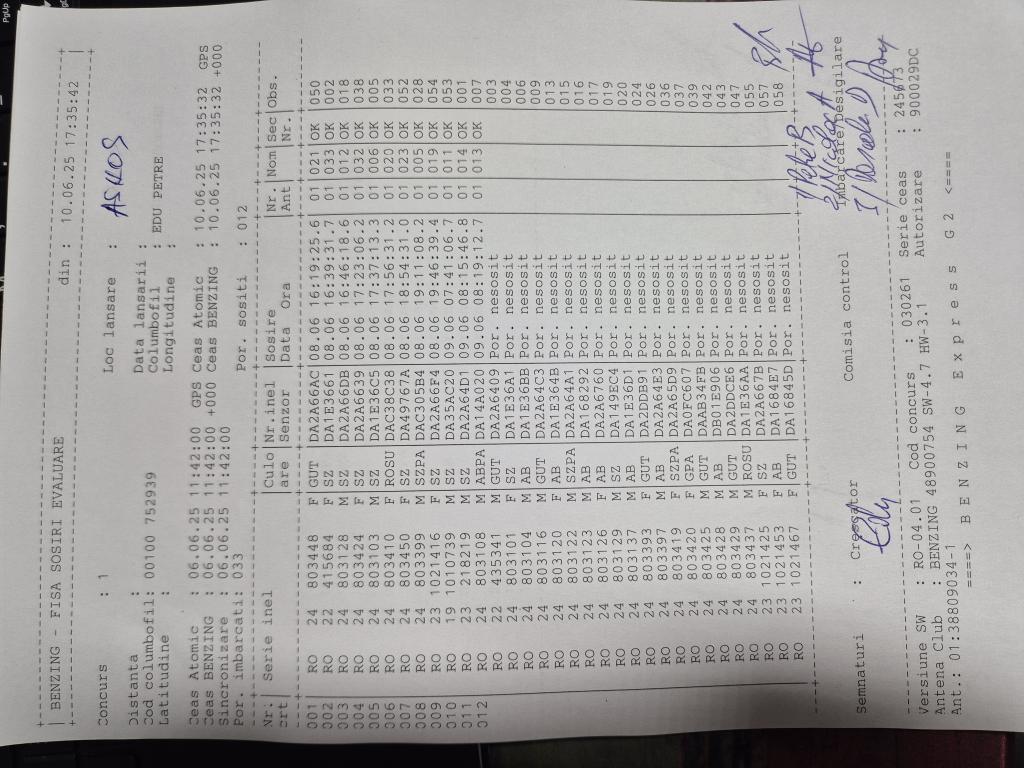 BENZING - FISA SOSIRI EVALUARE din : 10.06.25 17:35:42
Concurs : 1 Loc lansare : ASNOS
Distanta : Data lansarii :
Cod columbofil: 00100 752939 Columbofil : EDU PETRE
Latitudine : Longitudine :
Ceas Atomic : 06.06.25 11:42:00 GPS Ceas Atomic : 10.06.25 17:35:32 GPS
Ceas BENZING : 06.06.25 11:42:00 +000 Ceas BENZING : 10.06.25 17:35:32 +000
Sincronizare : 06.06.25 11:42:00
Por. imbarcati: 033 Por. sositi : 012
Nr. | Serie inel |Culo |Nr.inel |Sosire |Nr. |Nom |Sec |Obs.
crt | |are |Senzor |Data Ora |Ant | |Nr. |
001 | RO 24 803448 F GUT |DA2A66AC |08.06 16:19:25.6 |01 |021 |OK |050
002 | RO 22 415684 F SZ |DA1E3661 |08.06 16:39:31.7 |01 |033 |OK |002
003 | RO 24 803128 M SZ |DA2A66DB |08.06 16:46:18.6 |01 |012 |OK |018
004 | RO 24 803424 F SZ |DA2A6639 |08.06 17:23:06.2 |01 |032 |OK |038
005 | RO 24 803103 M SZ |DA1E36C5 |08.06 17:37:13.3 |01 |006 |OK |005
006 | RO 24 803410 F ROSU |DAC38C38 |08.06 17:56:31.2 |01 |020 |OK |033
007 | RO 24 803450 F SZ |DA49767A |08.06 18:54:31.0 |01 |023 |OK |052
008 | RO 24 803399 M SZPA |DAC305B4 |08.06 19:11:08.2 |01 |005 |OK |028
009 | RO 23 1021416 F SZ |DA2A66F4 |08.06 19:46:39.4 |01 |019 |OK |054
010 | RO 19 1010739 M SZ |DA35AC20 |09.06 07:41:06.7 |01 |011 |OK |053
011 | RO 23 218219 M SZ |DA2A64D1 |09.06 08:15:46.8 |01 |014 |OK |001
012 | RO 24 803108 M ABPA |DA14A020 |09.06 08:19:12.7 |01 |013 |OK |007
RO 22 435341 M GUT |DA2A6409 |Por. nesosit 003
RO 24 803101 F SZ |DA1E36A1 |Por. nesosit 004
RO 24 M AB |DA1E36BB |Por. nesosit 006
RO 24 803116 M GUT |DA2A64C3 |Por. nesosit 009
RO 24 803120 F AB |DA1E364B |Por. nesosit 013
RO 24 803122 M SZPA |DA2A64A1 |Por. nesosit 015
RO 24 803123 M AB |DA168292 |Por. nesosit 016
RO 24 803126 F AB |DA2A6760 |Por. nesosit 017
RO 24 803129 M SZ |DA149EC4 |Por. nesosit 019
RO 24 803137 M AB |DA1E36D1 |Por. nesosit 020
RO 24 803393 F GUT |DA2DDB91 |Por. nesosit 024
RO 24 803397 M AB |DA2A64E3 |Por. nesosit 026
RO 24 803419 F SZPA |DA2A65D9 |Por. nesosit 036
RO 24 803420 F GPA |DA0FC607 |Por. nesosit 037
RO 24 803425 M GUT |DAAB34FB |Por. nesosit 039
RO 24 803428 M AB |DB01E906 |Por. nesosit 042
RO 24 803429 M GUT |DA2DDCE6 |Por. nesosit 043
RO 24 803437 M ROSU |DA1E36AA |Por. nesosit 047
RO 23 1021425 F SZ |DA2A667B |Por. nesosit 055
RO 23 1021453 F AB |DA1684E7 |Por. nesosit 057
RO 23 1021467 F GUT |DA16845D |Por. nesosit 058
Semnaturi : Crescator Comisia control Imbarcare/Desigilare
Versiune SW : RO-04.01 Cod concurs : 030261 Serie ceas : 245673
Antena Club : BENZING 48900754 SW-4.7 HW-3.1 Autorizare : 900029DC
Ant.: 01:38809034-1
====> B E N Z I N G E x p r e s s G 2 <====